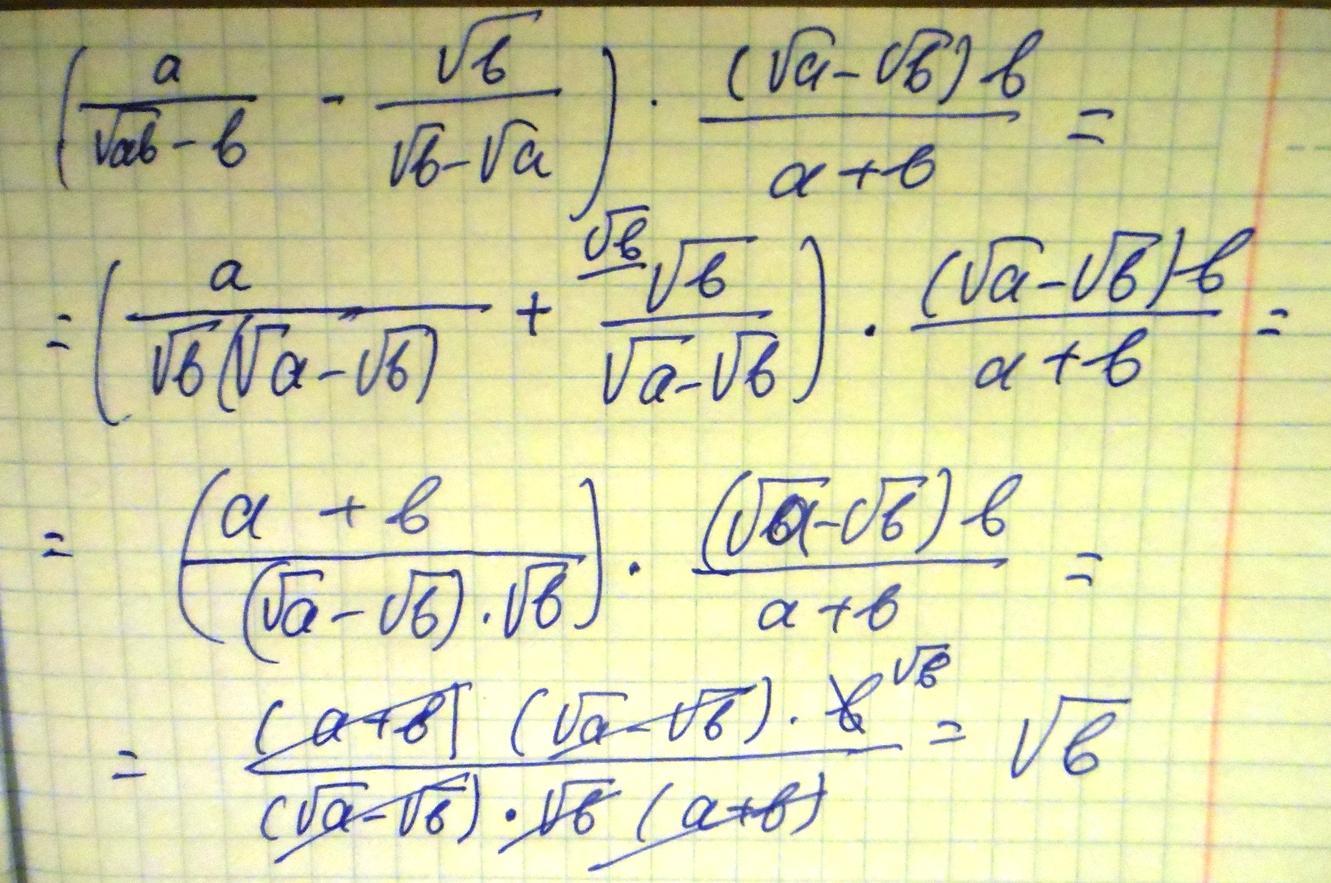 (a/(√ab - b) - √b/(√b - √a)) · ((√a - √b) b)/(a + b) =
= (a/(√b(√a - √b)) + √b √b/(√a - √b)) · ((√a - √b) b)/(a + b) =
= ((a + b)/((√a - √b) · √b)) · ((√a - √b) b)/(a + b) =
= ((a + b) (√a - √b) · b √b)/((√a - √b) · √b (a + b)) = √b